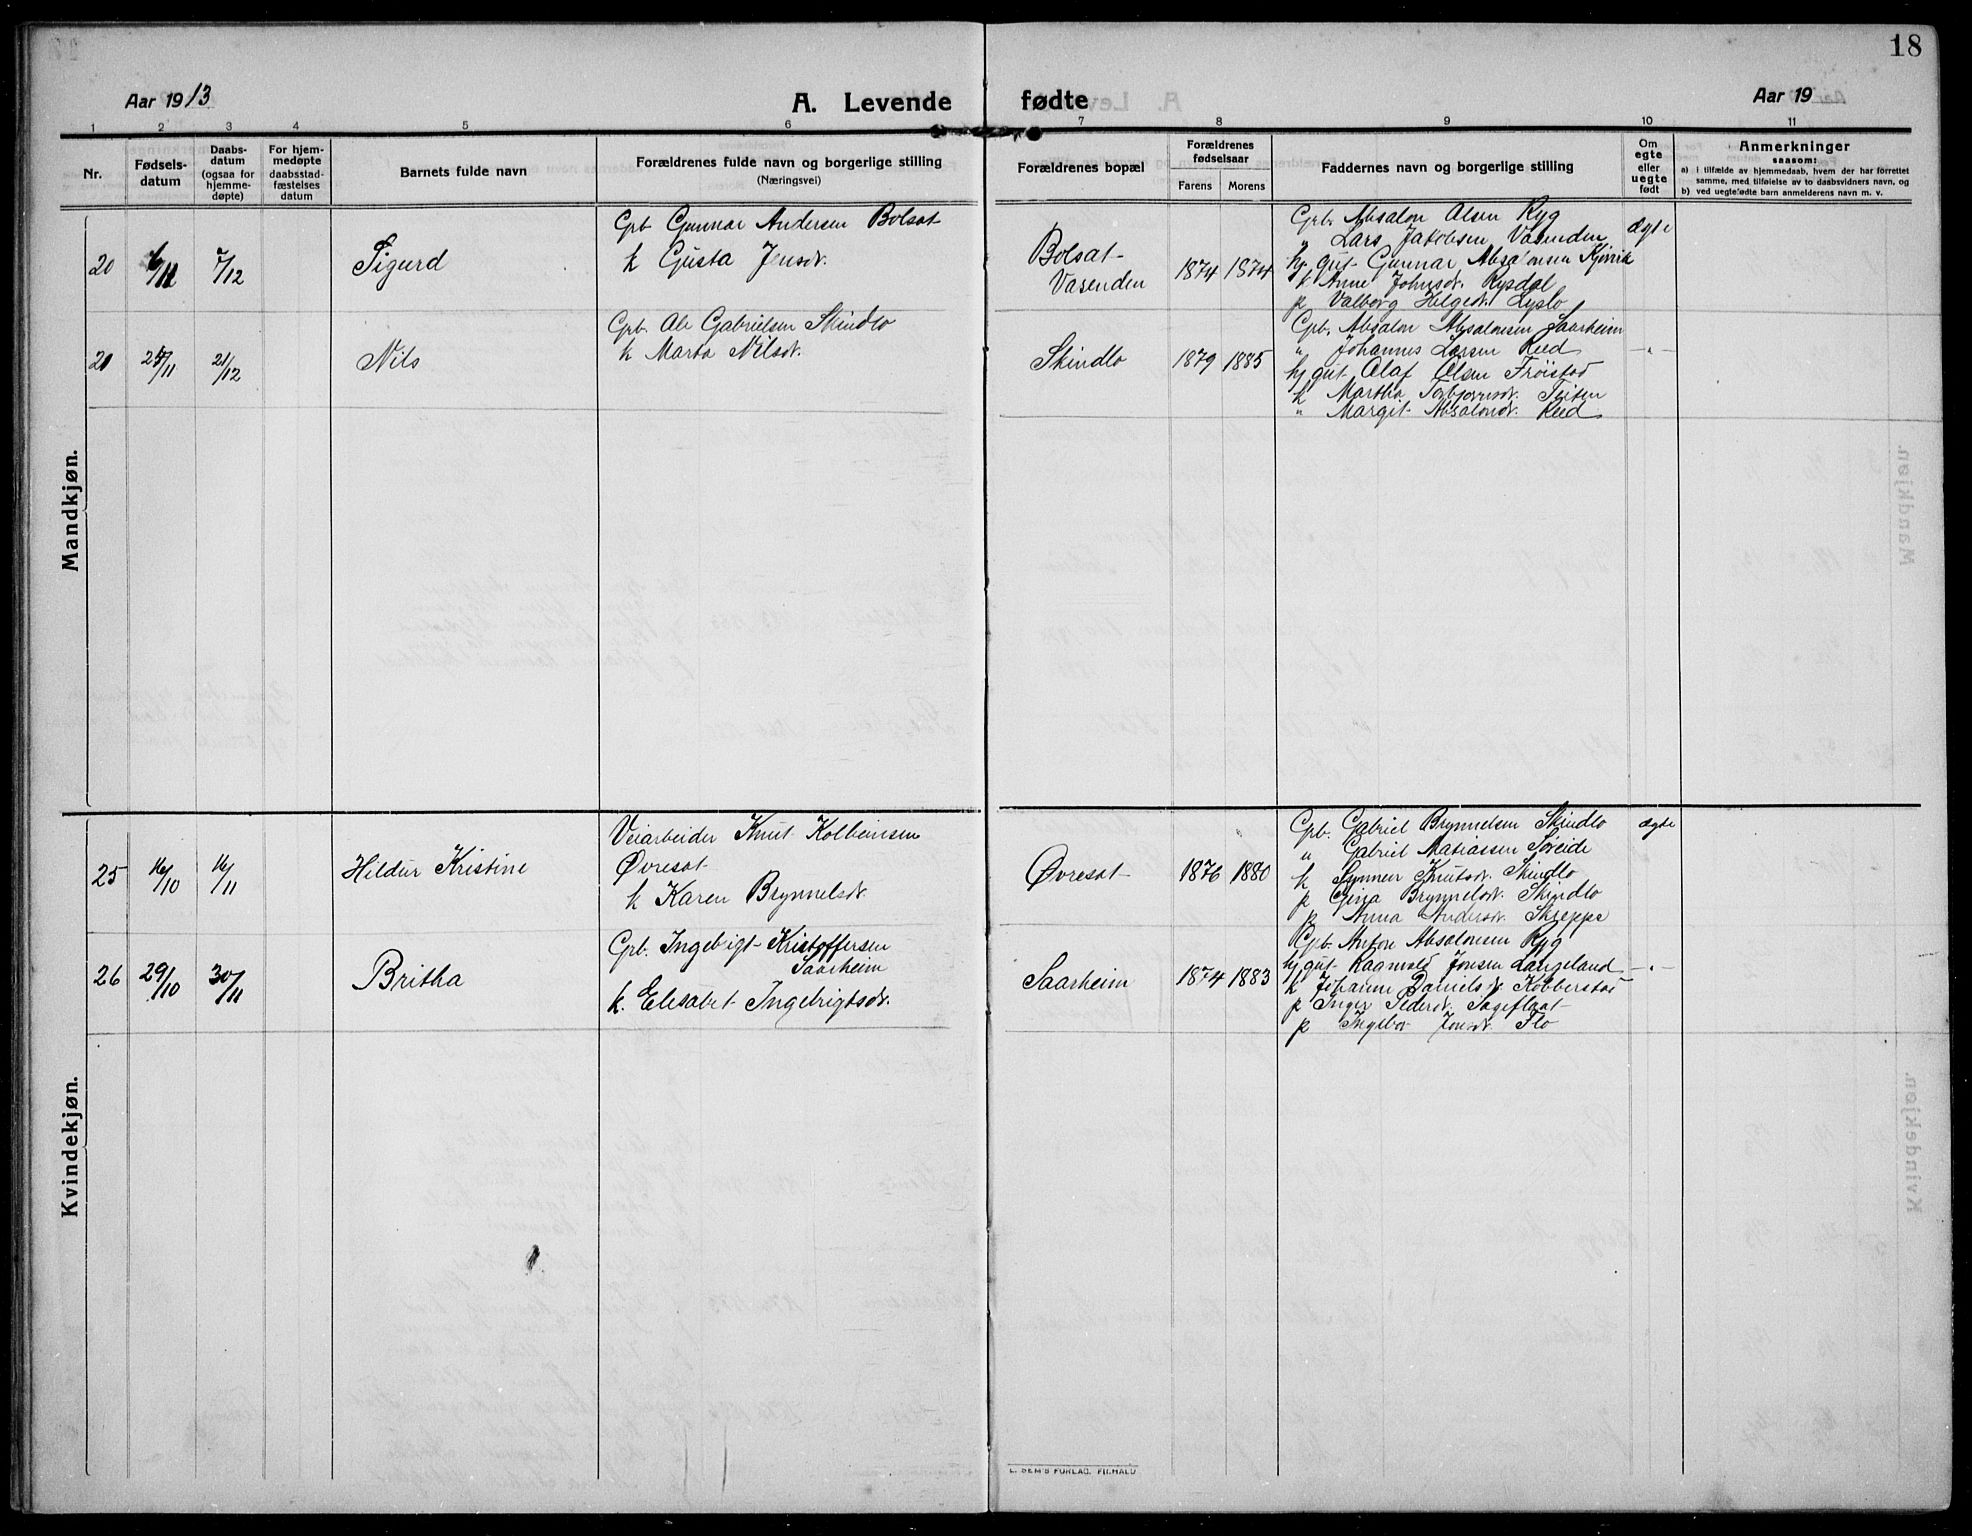 18
Aar 1913
A. Levende fødte
Aar 19
1 2 3 4 5 6 7 8 9 10 11
Nr.
Fødsels-
datum
Daabs-
datum
(ogsaa for
hjemme-
døpte)
For hjem-
medøpte
daabsstad-
fæstelses
datum
Barnets fulde navn
Forældrenes fulde navn og borgerlige stilling
(Næringsvei)
Forældrenes bopæl
Forældrenes
fødselsaar
Farens Morens
Faddernes navn og borgerlige stilling
Om
egte
eller
uegte
født
Anmerkninger
saasom:
a) i tilfælde av hjemmedaab, hvem der har forrettet
samme, med tilføielse av to daabsvidners navn, og
b) ved uegtefødte barn anmelderens navn m. v.
Mandkjøn.
20 6/11 7/12 Sigurd
Grb. Gunnar Andersen Bolsat
k Gusta Jensdr.
Bolsat-
Vasenden
1874 1874
Grb. Absalon Olsen Ryg
" Lars Jakobsen Vasenden
hj gut Gunnar Absalonsen Kjørvik
k Anne Johnsdr. Rysdal
p Valborg Helgedr. Lyslo
ægte
21 25/11 21/12 Nils
Grb. Ole Gabrielsen Skindlo
k Marta Nilsdr.
Skindlo
1879 1885
Grb. Absalon Absalonsen Saarheim
" Johannes Larsen Reed
hj gut Olaf Olsen Frøistad
k Martha Torbjørnsdr. Teiten
" Margit Absalondr. Reed
-"-
Kvindekjøn.
25 16/10 16/11 Hildur Kristine
Veiarbeider Knut Kolbeinsen
Øvresat
k Karen Brynnelsdr.
Øvresat
1876 1880
Grb. Gabriel Brynnelsen Skindlo
" Gabriel Matiassen Søreide
k Synneve Knutsdr. Skindlo
p Gina Brynnelsdr. Skindlo
p Anna Andersdr. Skreppe
ægte
26 29/10 30/11 Britha
Grb. Ingebrigt Kristoffersen
Saarheim
k. Elisabet Ingebrigtsdr.
Saarheim
1874 1883
Grb. Anton Absalonsen Ryg
hj gut Ragnvald Jonsen Langeland
k Johanne Danielsdr. Kobberstad
p Inger Pedersdr. Sageflaat
p Ingebor Jonsdr. Flo
-"-
E. SEM'S FORLAG, FR.HALD